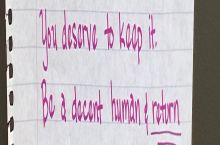 You deserve to keep it.
Be a decent human & return